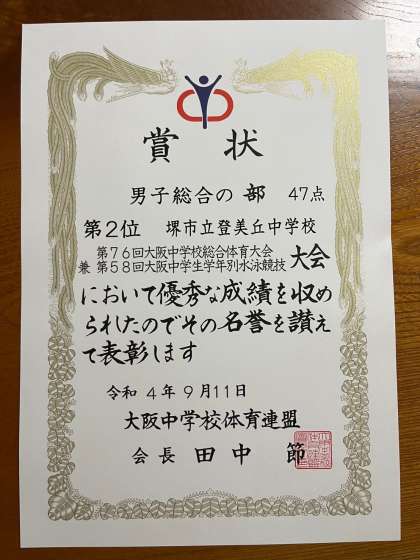 賞状
男子総合の部 47点
第2位 堺市立登美丘中学校
第76回大阪中学校総合体育大会
兼 第58回大阪中学生学年別水泳競技 大会
において優秀な成績を収め
られたのでその名誉を讃え
て表彰します
令和4年9月11日
大阪中学校体育連盟
会長 田中 節